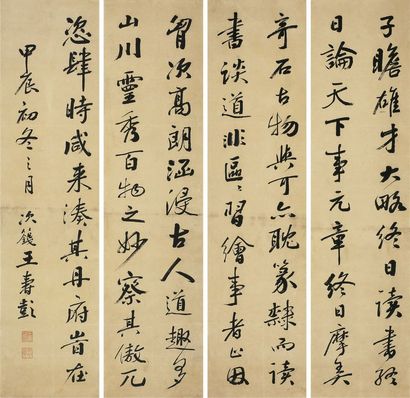 子瞻雄才大略終日讀書終
日論天下事元章終日摩
奇石古物與可亦耽篆隸而讀
書談道非區〻習繪事者止因
胷次高朗涵浸古人道趣多
山川靈秀百物之妙察其傲兀
恣肆時咸来湊其丹府皆在
甲辰初冬之月 次篯王壽彭